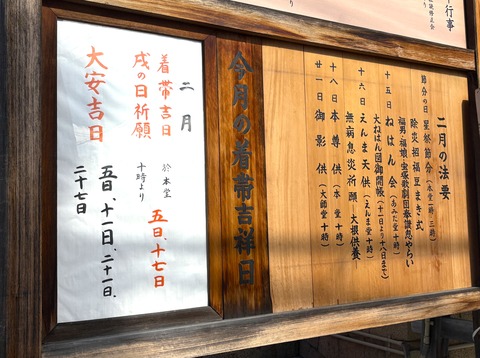 行事
二月の法要
節分の日 星祭節分(本堂 一時、三時)
除災招福豆まき式
福男・福娘・宝塚歌劇団奉讃・悪やらい
十五日 ねはん会(あみだ堂 十時)
大ねはん図御開帳(十一日より十八日まで)
十六日 えんま天供(えんま堂 十時)
無病息災祈願 -大根供養-
十八日 本尊供(本堂 十時)
廿一日 御影供(大師堂 十時)
今月の着帯吉祥日
二月
着帯吉日 於本堂
戌の日祈願 十時より
五日、十七日
大安吉日
五日、十一日、二十一日、
二十七日